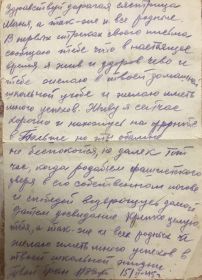 Здравствуй дорогая сестрица
Маня, а так-же и все родные.
В первых строках своего письма
сообщаю тебе что в настоящее
время я жив и здоров чево и
тебе желаю в твоей
школьной учебе и желаю иметь
много успехов. Живу я сейчас
хорошо и нахожусь на фронте
в Польше но это
не беспокойся, не далек тот
час, когда раздавим фашистского
зверя в его собственном логове
и с победой возвратимся домой
до свидание крепко целую
тебя, а так-же и все родные
желаю иметь много успехов в
твоей школьной
твой брат